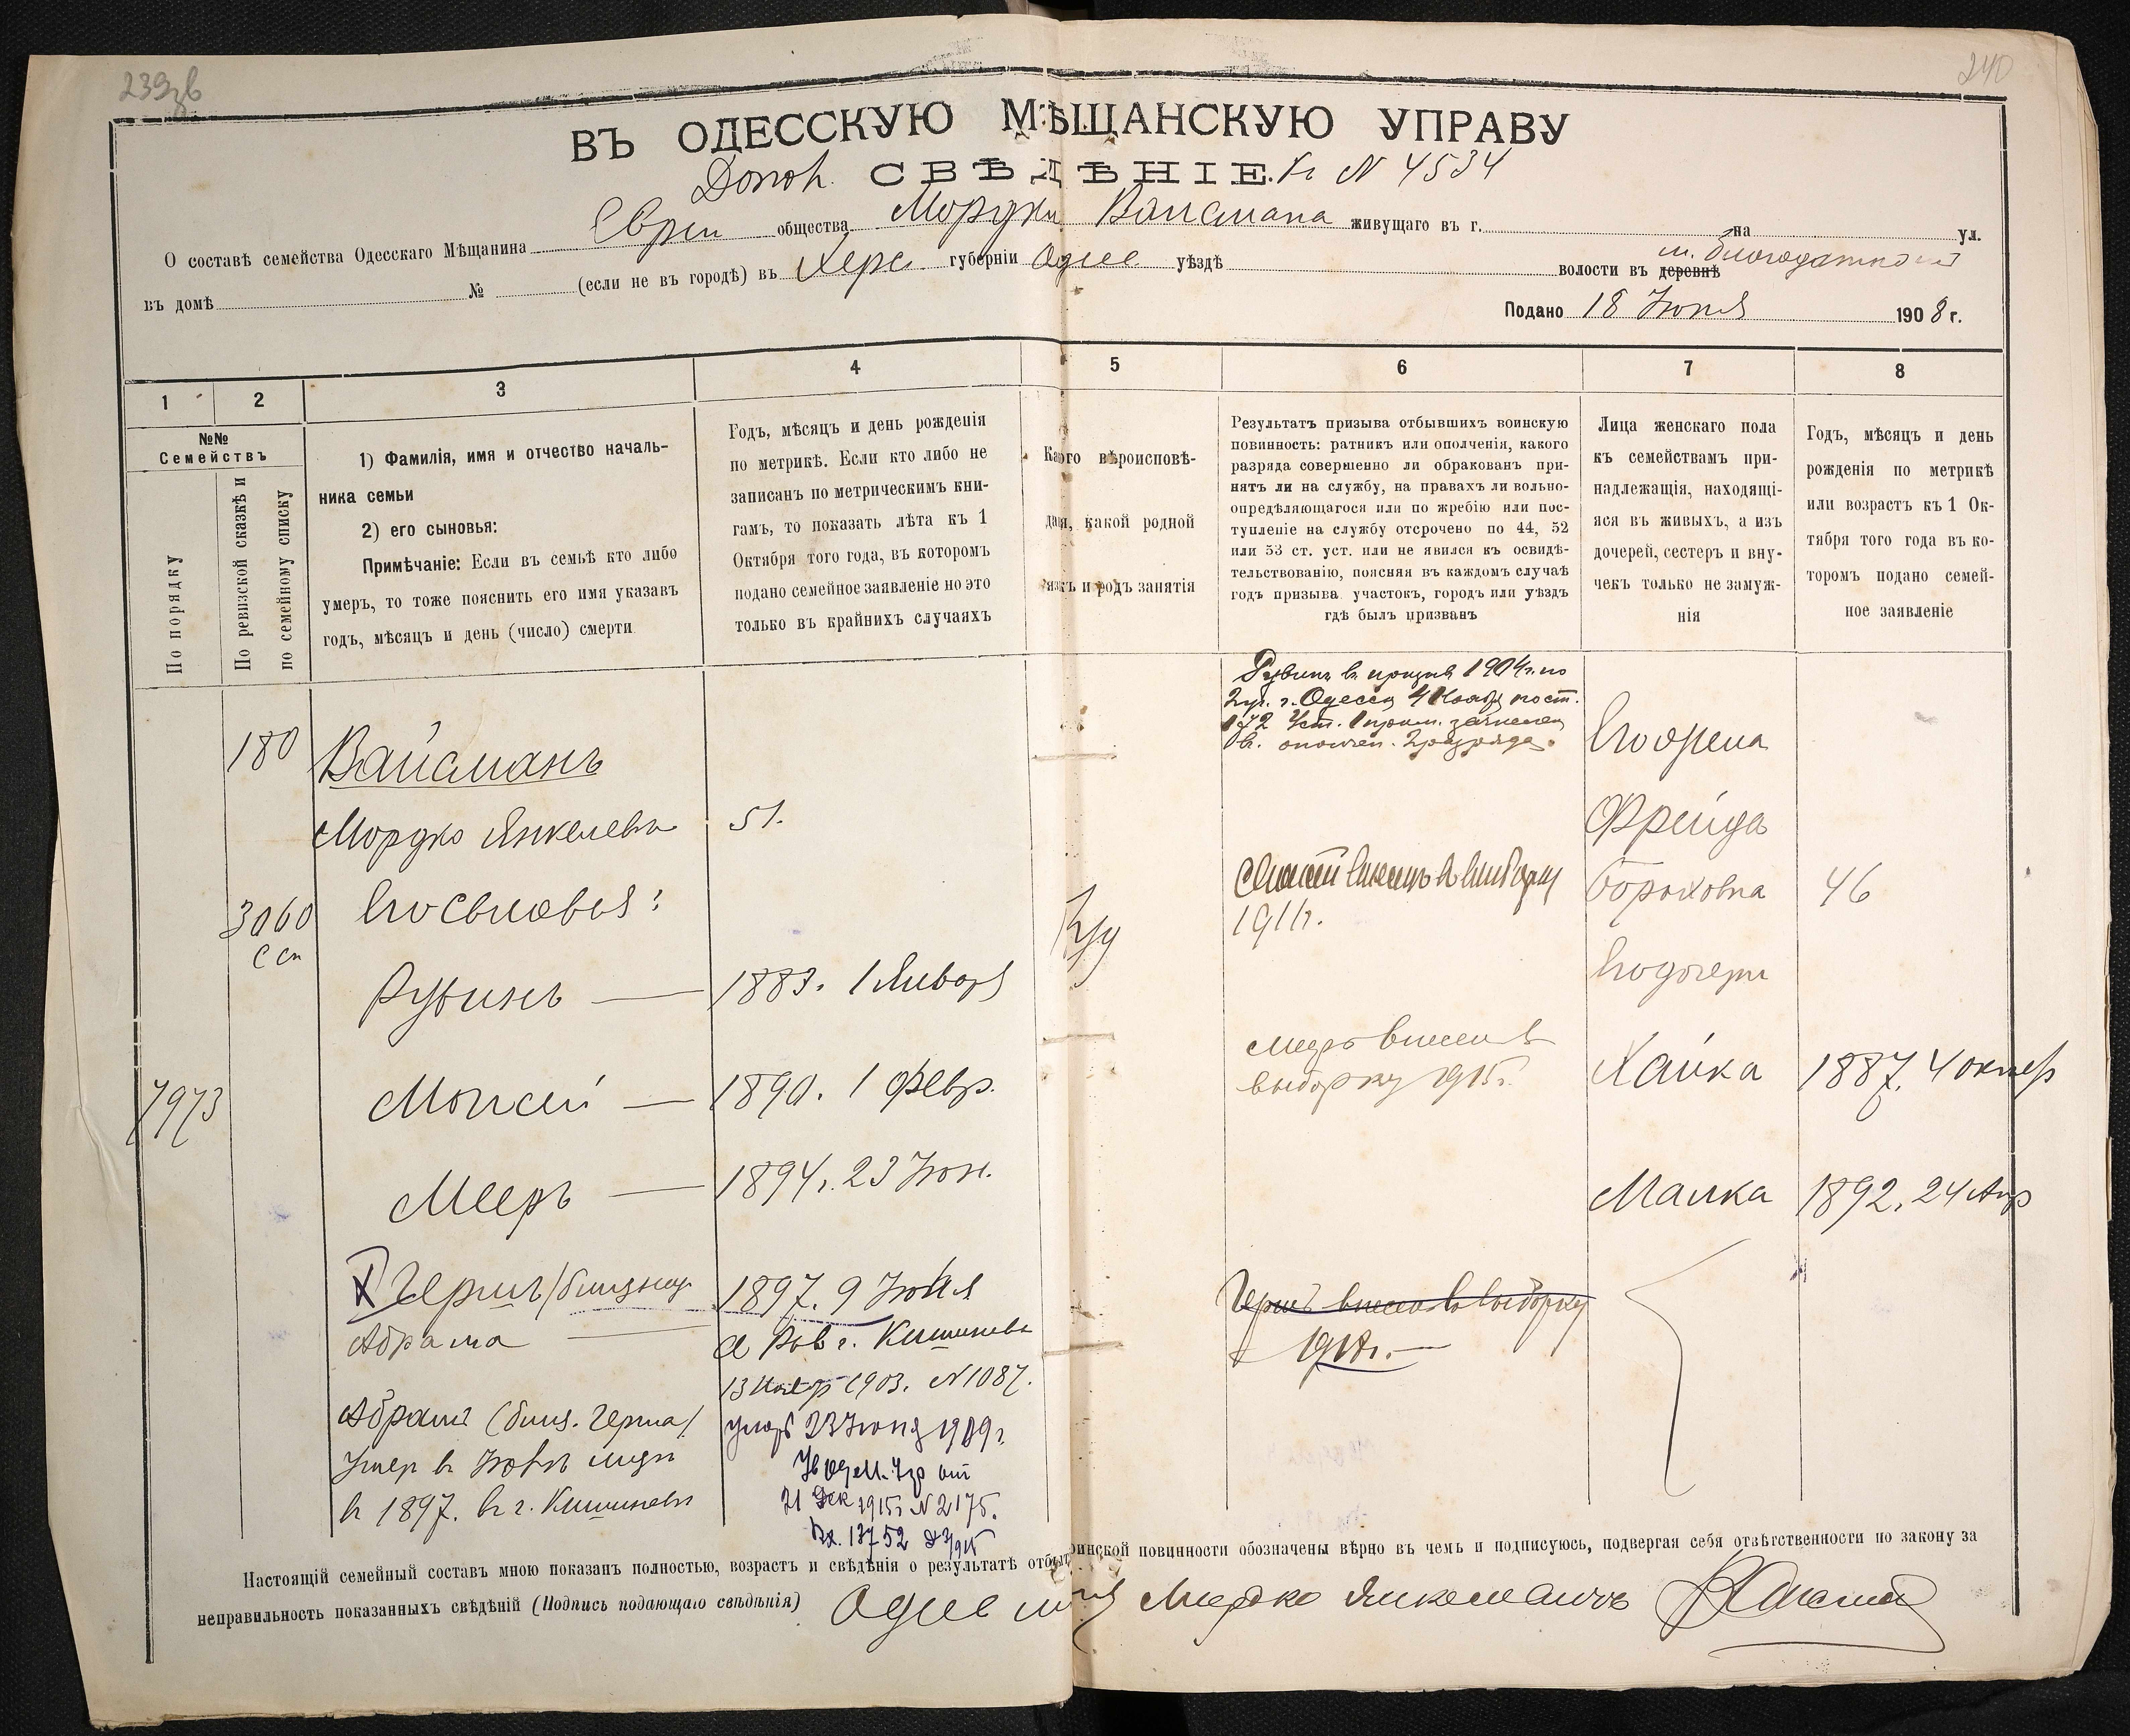 239об
240
ВЪ ОДЕССКУЮ МѢЩАНСКУЮ УПРАВУ
Допол. СВѢДѢНІЕ. Къ N 4534
О составѣ семейства Одесскаго Мѣщанина Евреи общества Мордки Вайсмана живущаго въ г. на ул.
въ домѣ № (если не въ городѣ) въ Херс губерніи Одес уѣздѣ волости въ деревнѣ м. Благодатной
Подано 18 Іюня 1908 г.
1 2 3 4 5 6 7 8
№№ Семействъ
По порядку
По ревизской сказкѣ и по семейному списку
1) Фамилія, имя и отчество началь-
ника семьи
2) его сыновья:
Примѣчаніе: Если въ семьѣ кто либо
умеръ, то тоже пояснить его имя указавъ
годъ, мѣсяцъ и день (число) смерти
Годъ, мѣсяцъ и день рожденія
по метрикѣ. Если кто либо не
записанъ по метрическимъ кни-
гамъ, то показать лѣта къ 1
Октября того года, въ которомъ
подано семейное заявленіе но это
только въ крайнихъ случаяхъ
Какого вѣроисповѣ-
данія, какой родной
языкъ и родъ занятія
Результатъ призыва отбывшихъ воинскую
повинность: ратникъ или ополченія, какого
разряда совершенно ли обракованъ при-
нятъ ли на службу, на правахъ ли вольно-
опредѣляющагося или по жребію или пос-
тупленіе на службу отсрочено по 44, 52
или 53 ст. уст. или не явился къ освидѣ-
тельствованію, поясняя въ каждомъ случаѣ
годъ призыва участокъ, городъ или уѣздъ
гдѣ былъ призванъ
Лица женскаго пола
къ семействамъ при-
надлежащія, находящі-
яся въ живыхъ, а изъ
дочерей, сестеръ и вну-
чекъ только не замуж-
нія
Годъ, мѣсяцъ и день
рожденія по метрикѣ
или возрастъ къ 1 Ок-
тября того года въ ко-
торомъ подано семей-
ное заявленіе
180
3060
7973
Вайсманъ
Мордко Янкелевъ 51.
Его сыновья:
Рувинъ — 1883. 1 Января
Моисей — 1890. 1 Февр.
Мееръ — 1894 г. 23 Іюн.
Гершъ /близнец
Абрама
1897. 9 Іюня
Рав г. Кишинева
13 Ноябр 1903. N 1087.
Абрамъ (близ. Герша)
Умер в Іюнѣ мѣсц
в 1897. в г. Кишиневѣ
умеръ 23 Іюня 1909 г.
21 Дек 1915 г N 2175.
Вх. 13752
Іуд
Рувинъ въ призывъ 1904 г. по
2 уч. г. Одессы 4 Ноября пост.
зачислен
въ ополчен. 2 разряда.
1911 г.
Мееръ внесен в
выборку 1915 г.
Гершъ внесенъ въ выборку
1918 г. —
Его жена
Фрейда
Бороховна 46
Его дочери
Хайка 1887. 4 октяб
Малка 1892. 24 Апр
Настоящій семейный составъ мною показанъ полностью, возрастъ и свѣдѣнія о результатѣ отбыт воинской повинности обозначены вѣрно въ чемъ и подписуюсь, подвергая себя отвѣтственности по закону за
неправильность показанныхъ свѣдѣній (Подпись подающаго свѣдѣнія) Одес мещ Мордко Янкелевичъ Вайсман